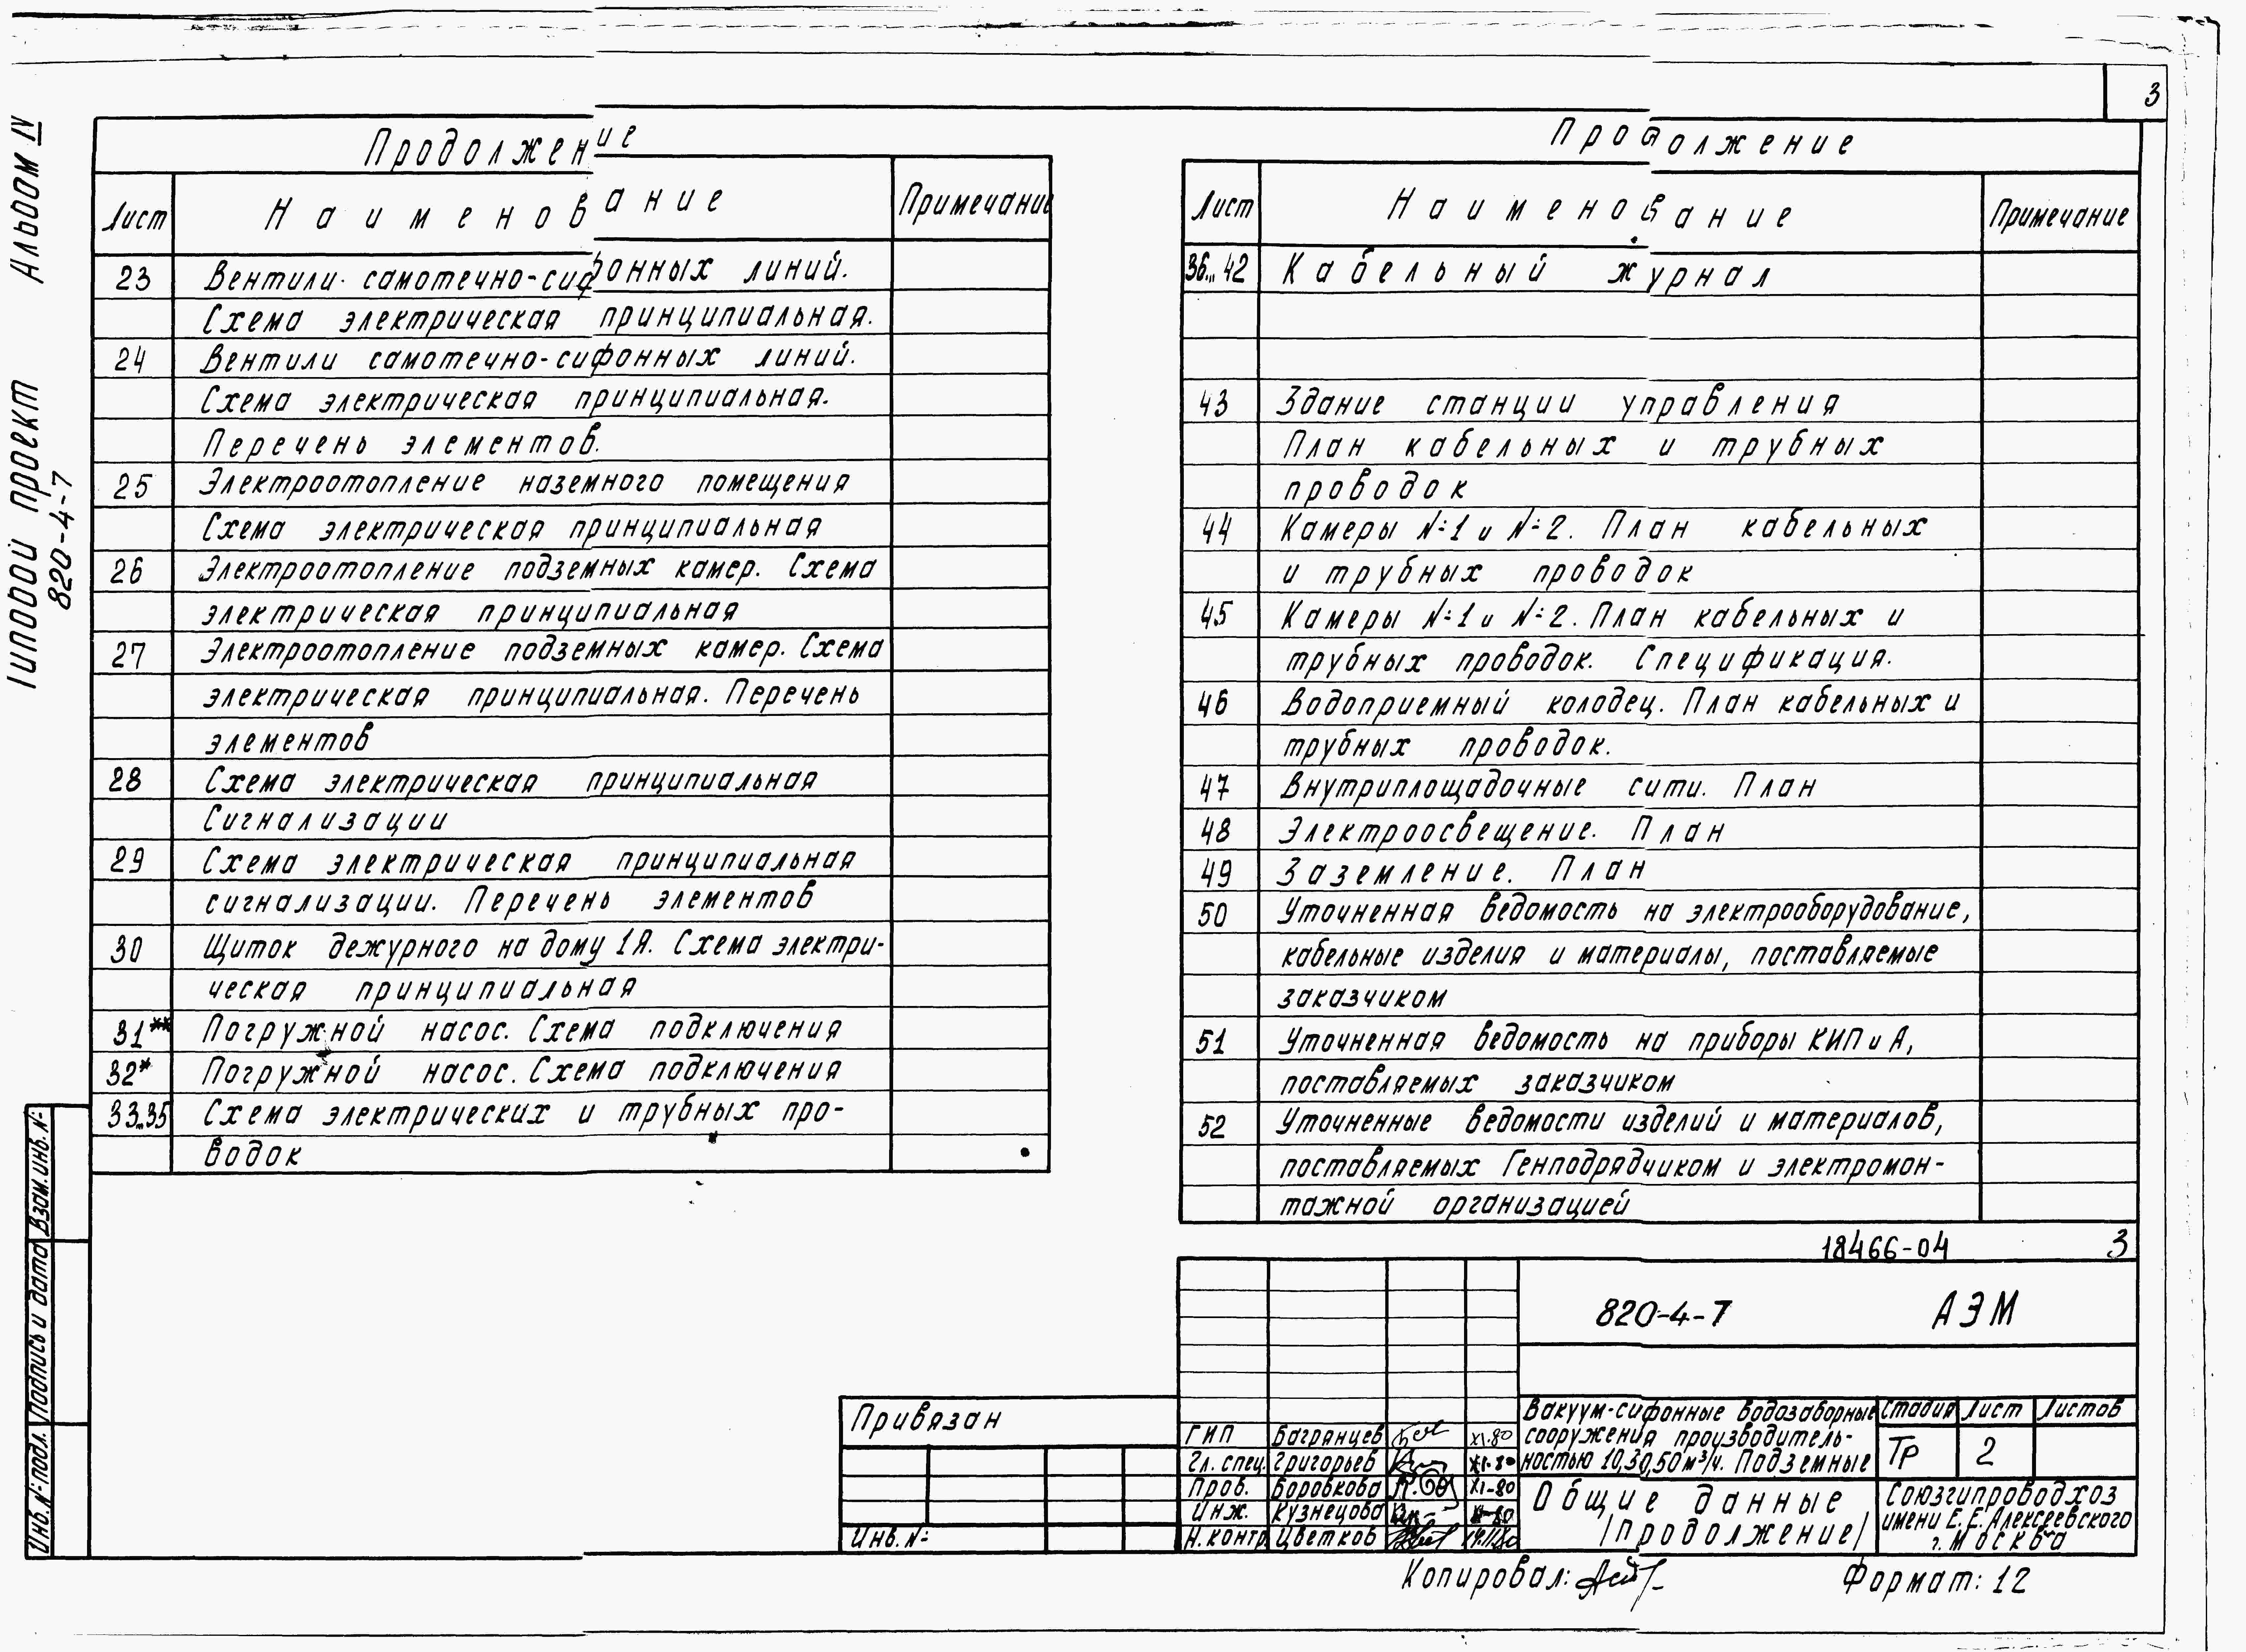 3
Альбом IV
Типовой проект
820-4-7
Продолжение
Лист Наименование Примечание
23 Вентили самотечно-сифонных линий.
Схема электрическая принципиальная.
24 Вентили самотечно-сифонных линий.
Схема электрическая принципиальная.
Перечень элементов.
25 Электроотопление наземного помещения
Схема электрическая принципиальная
26 Электроотопление подземных камер. Схема
электрическая принципиальная
27 Электроотопление подземных камер. Схема
электрическая принципиальная. Перечень
элементов
28 Схема электрическая принципиальная
Сигнализации
29 Схема электрическая принципиальная
сигнализации. Перечень элементов
30 Щиток дежурного на дому 1Я. Схема электри-
ческая принципиальная
31** Погружной насос. Схема подключения
32* Погружной насос. Схема подключения
33...35 Схема электрических и трубных про-
водок
Продолжение
Лист Наименование Примечание
36...42 Кабельный журнал
43 Здание станции управления
План кабельных и трубных
проводок
44 Камеры №1 и №2. План кабельных
и трубных проводок
45 Камеры №1 и №2. План кабельных и
трубных проводок. Спецификация.
46 Водоприемный колодец. План кабельных и
трубных проводок.
47 Внутриплощадочные сити. План
48 Электроосвещение. План
49 Заземление. План
50 Уточненная ведомость на электрооборудование,
кабельные изделия и материалы, поставляемые
заказчиком
51 Уточненная ведомость на приборы КИП и А,
поставляемых заказчиком
52 Уточненные ведомости изделий и материалов,
поставляемых Генподрядчиком и электромон-
тажной организацией
18466-04 3
820-4-7 АЭМ
Вакуум-сифонные водозаборные
сооружения производитель-
ностью 10,30,50 м³/ч. Подземные
Стадия Лист Листов
ТР 2
Общие данные
/продолжение/
Союзгипроводхоз
имени Е.Е.Алексеевского
г. Москва
ГИП Багрянцев XI-80
Гл. спец. Григорьев XI-80
Пров. Боровкова XI-80
Инж. Кузнецова XI-80
Н.контр. Цветков
Привязан
Инв. №
Взам. инв. №
Подпись и дата
Инв. № подл.
Копировал:
Формат: 12